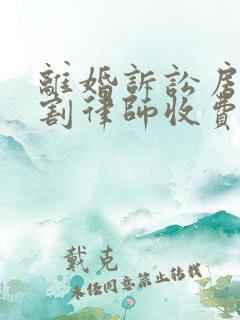 離婚訴訟房
割律師收費
戴克
未經同意禁止轉載